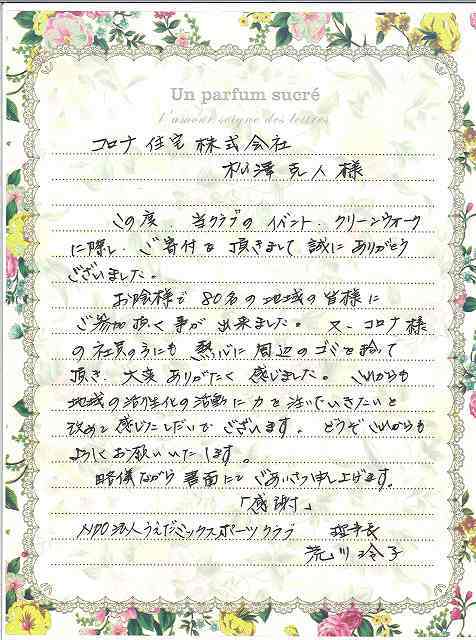 Un parfum sucré
l'amour soigne des lettres
コロナ住宅株式会社
松澤克人様
この度 当クラブの イベント、クリーンウォーク
に際し、ご寄付を頂きまして誠にありがとう
ございました。
お陰様で80名の地域の皆様に
ご参加頂く事が出来ました。又、コロナ様
の社員の方にも 熱心に周辺のゴミを拾って
頂き、大変ありがたく感じました。これからも
地域の活性化の活動に力を注いでいきたいと
改めて感じたしだいでございます。どうぞこれからも
よろしくお願いいたします。
略儀ながら書面にてごあいさつ申し上げます。
「感謝」
NPO法人うえだミックスポーツクラブ 理事長
荒川玲子